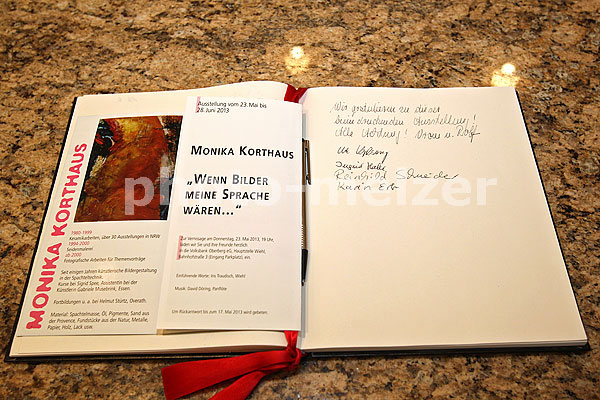 MONIKA KORTHAUS
1980-1999
Keramikarbeiten, über 30 Ausstellungen in NRW
1994-2000
Seidenmalerei
ab 2000
Fotografische Arbeiten für Themenvorträge
Seit einigen Jahren künstlerische Bildergestaltung
in der Spachteltechnik.
Kurse bei Sigrid Spee, Assistentin bei der
Künstlerin Gabriele Musebrink, Essen.
Fortbildungen u. a. bei Helmut Stürtz, Overath.
Material: Spachtelmasse, Öl, Pigmente, Sand aus
der Provence, Fundstücke aus der Natur, Metalle,
Papier, Holz, Lack usw.
Ausstellung vom 23. Mai bis
28. Juni 2013
MONIKA KORTHAUS
„WENN BILDER
MEINE SPRACHE
WÄREN...“
Zur Vernissage am Donnerstag, 23. Mai 2013, 19 Uhr,
laden wir Sie und Ihre Freunde herzlich
in die Volksbank Oberberg eG, Hauptstelle Wiehl,
Bahnhofstraße 3 (Eingang Parkplatz), ein.
Einführende Worte: Iris Trautisch, Wiehl
Musik: David Döring, Panflöte
Um Rückantwort bis zum 17. Mai 2013 wird gebeten.
Wir gratulieren zu dieser
beeindruckenden Ausstellung!
Alle Achtung! u. Rolf
Ingrid
Reinhild Schneider
Karin Erb
photo-melzer